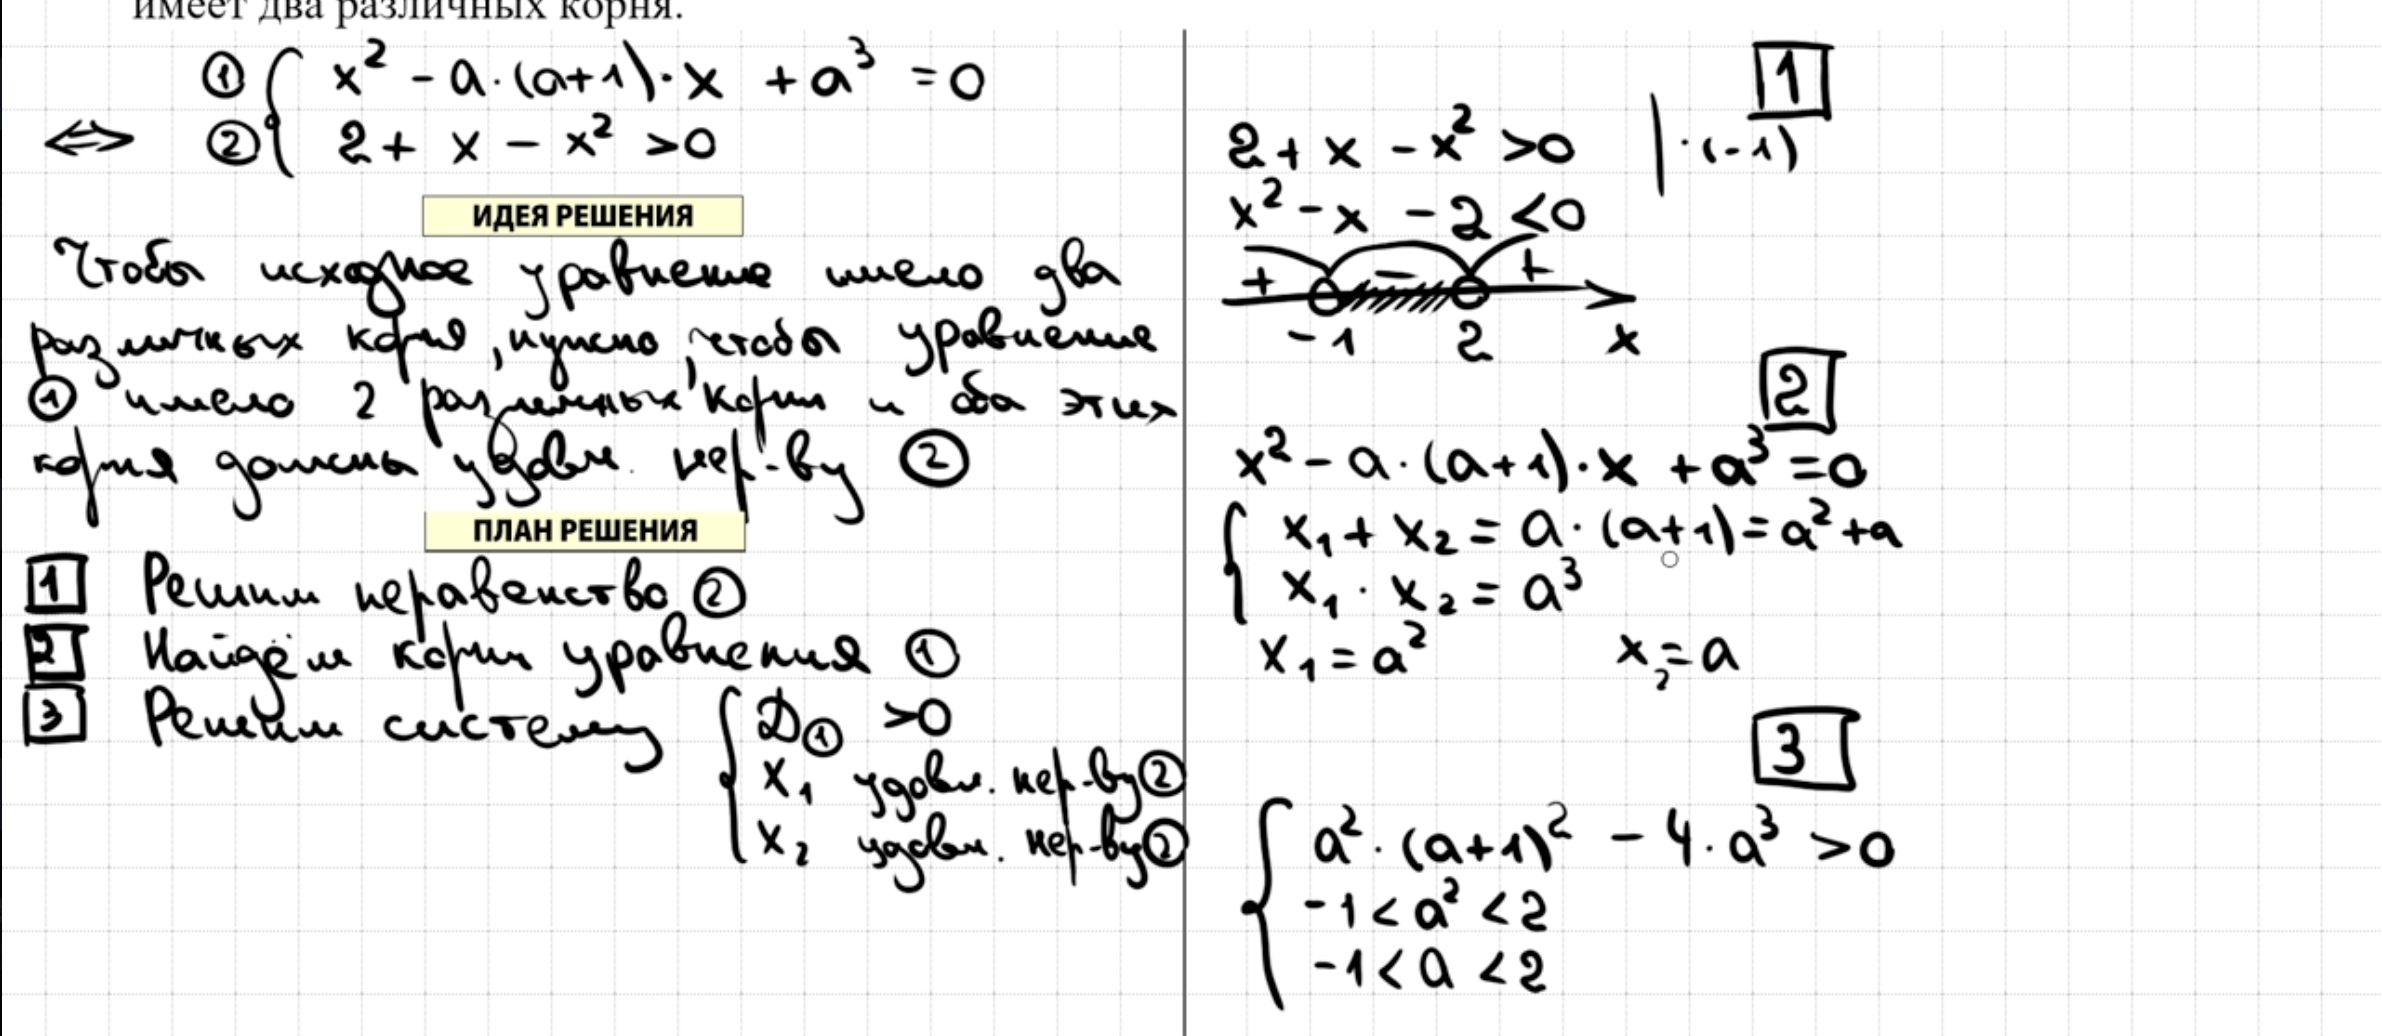 имеет два различных корня.
① { x² - a·(a+1)·x + a³ = 0
⟺ ② { 2 + x - x² > 0
ИДЕЯ РЕШЕНИЯ
Чтобы исходное уравнение имело два
различных корня, нужно, чтобы уравнение
① имело 2 различных корня и оба этих
корня должны удовл. нер-ву ②
ПЛАН РЕШЕНИЯ
1 Решим неравенство ②
2 Найдём корни уравнения ①
3 Решим систему { D① > 0
x₁ удовл. нер-ву ②
x₂ удовл. нер-ву ②
1
2 + x - x² > 0 | ·(-1)
x² - x - 2 < 0
+ - +
-1 2 x
2
x² - a·(a+1)·x + a³ = 0
{ x₁ + x₂ = a·(a+1) = a² + a
x₁ · x₂ = a³
x₁ = a² x₂ = a
3
{ a²·(a+1)² - 4·a³ > 0
-1 < a² < 2
-1 < a < 2